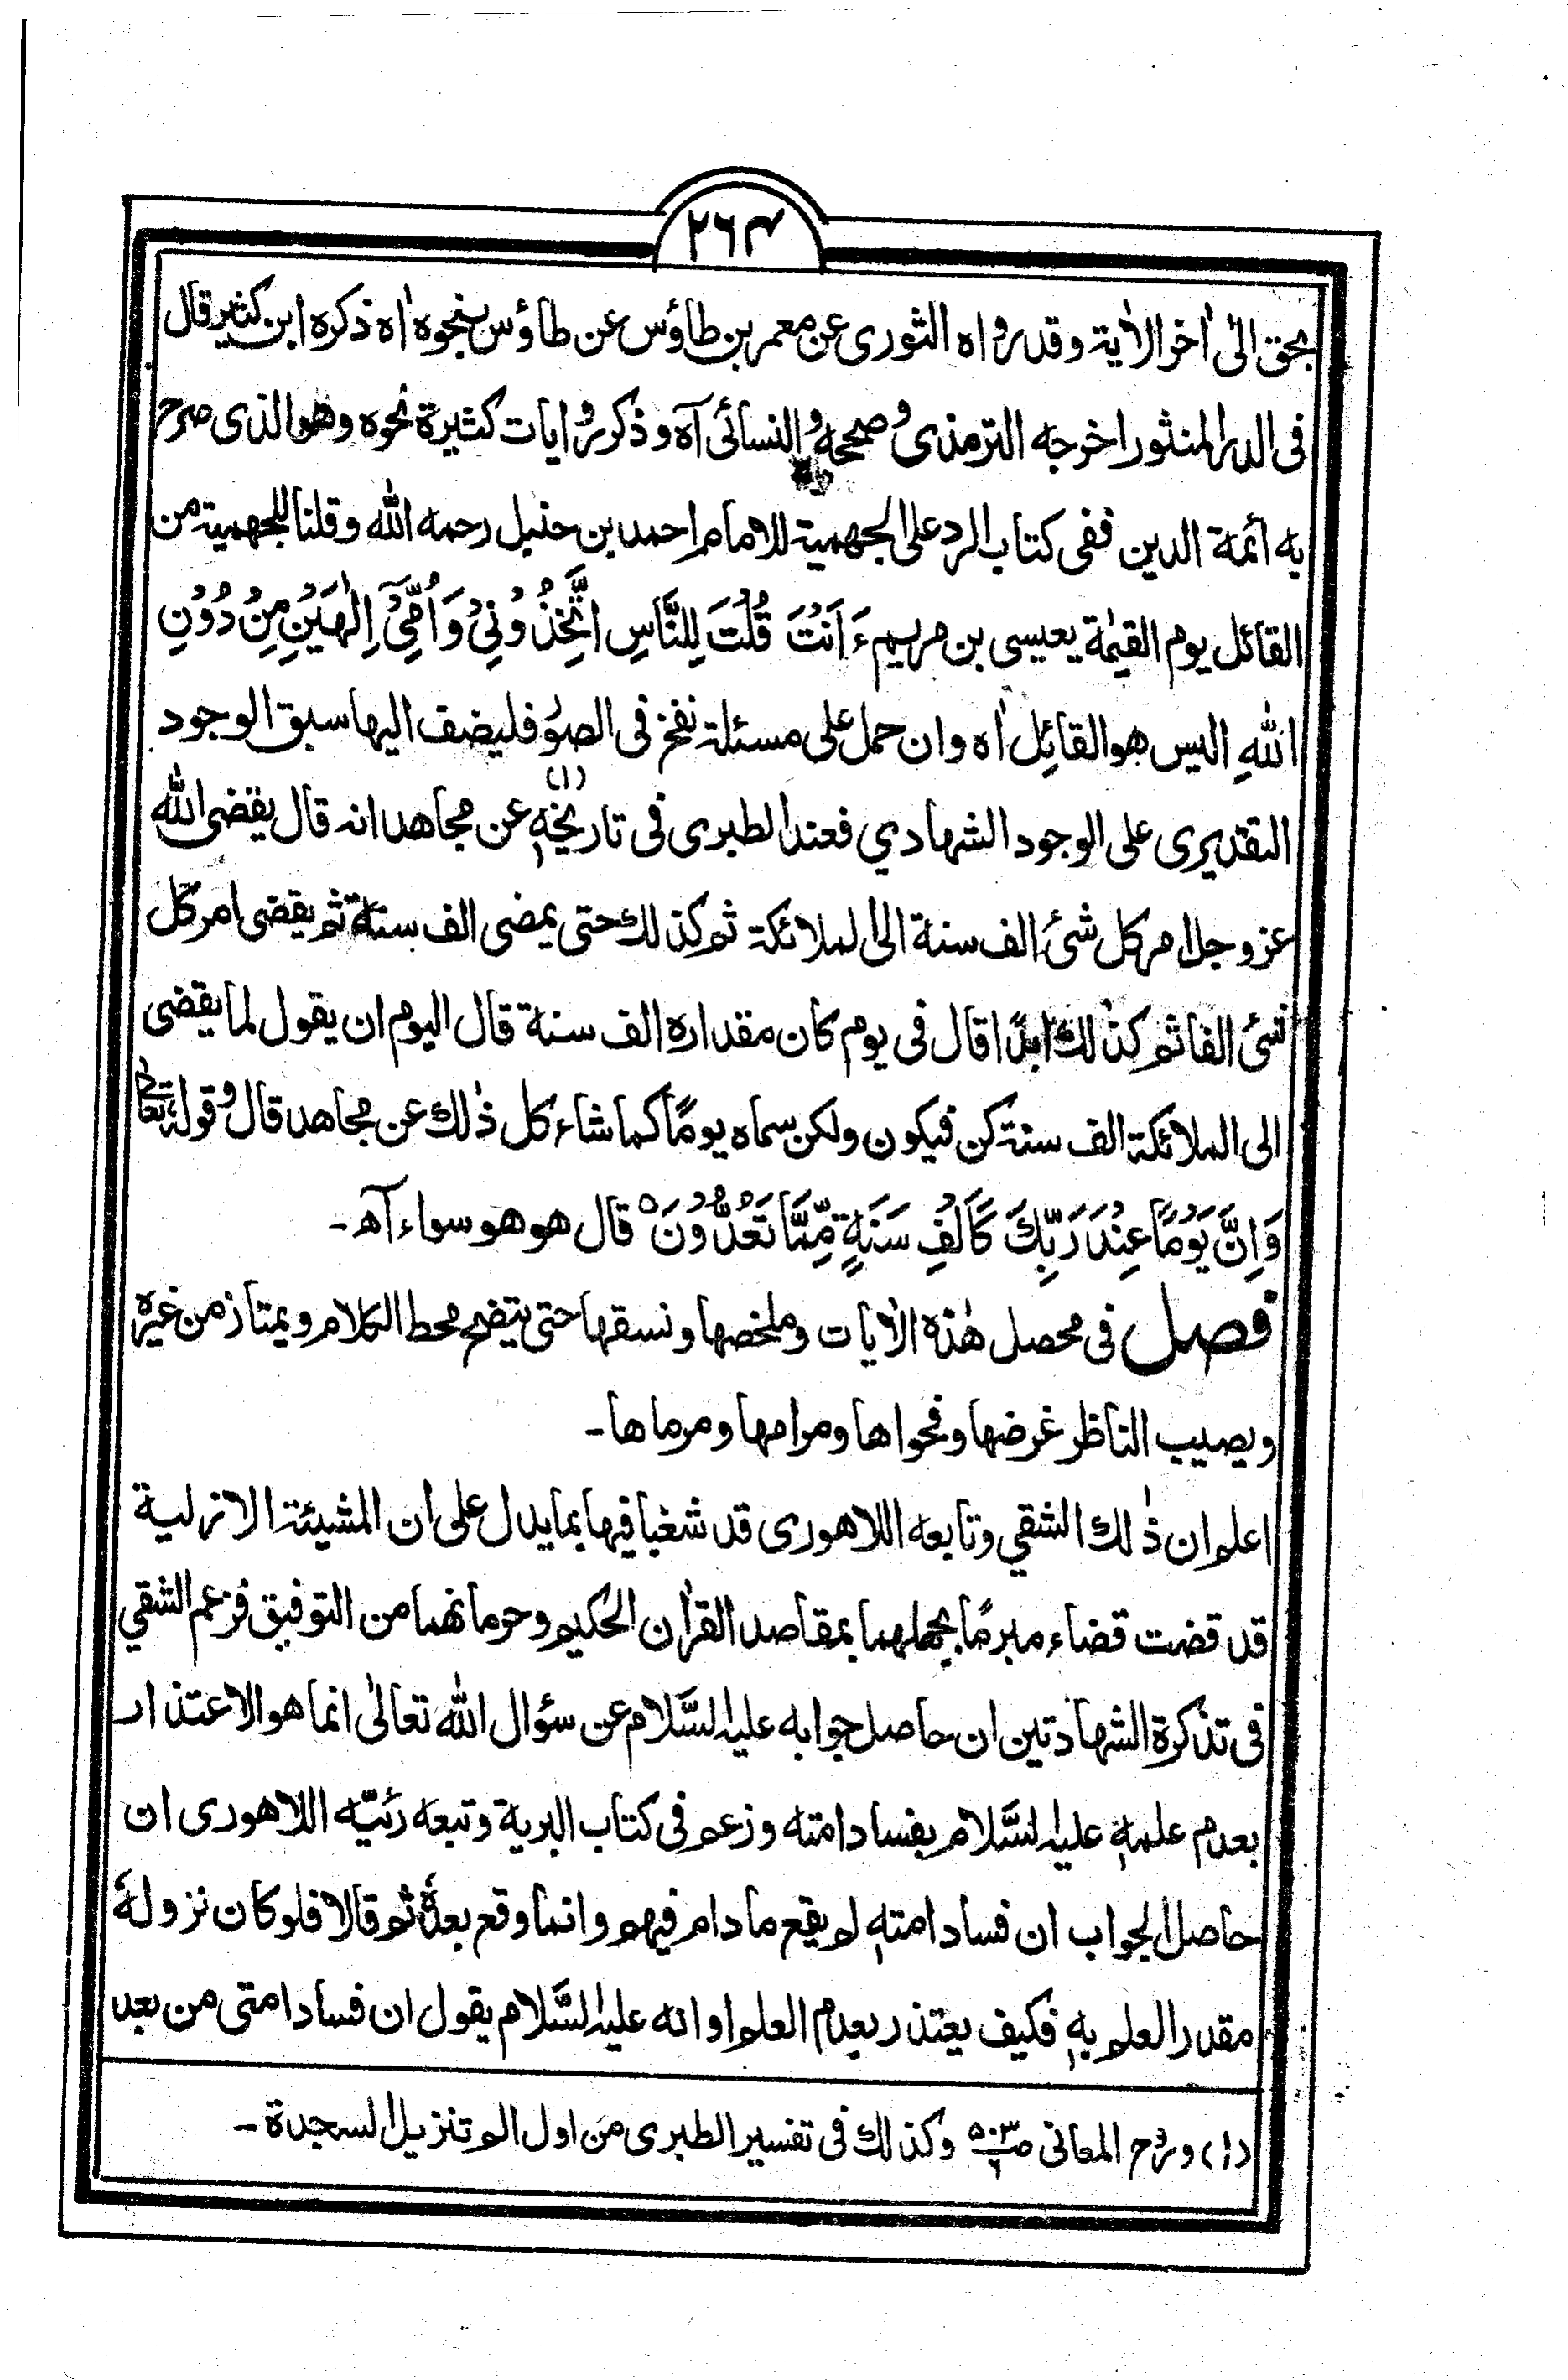 ۲۶۴
بحق الىٰ اٰخر الاٰية وقد رواه الثورى عن معمر بن طاؤس عن طاؤس بنحوه اٰه ذكره ابن كثير قال
فى الدر المنثور اخرجه الترمذى وصححه والنسائى آه وذكر روايات كثيرة نحوه وهو الذى صرح
به أئمة الدين ففى كتاب الرد على الجهمية للامام احمد بن حنبل رحمه الله وقلنا للجهمية من
القائل يوم القيٰمة يعيسى بن مريم ءَ اَنْتَ قُلْتَ لِلنَّاسِ اتَّخِذُوْنِىْ وَ اُمِّىَ اِلٰهَيْنِ مِنْ دُوْنِ
اللهِ اليس هو القائِل اٰه وان حمل على مسئلة نفخ فى الصوٗر فليضف اليها سبق الوجود
التقديرى على الوجود الشهادي فعند الطبرى فى تاريخهٖ (۱) عن مجاهد انه قال يقضى الله
عزوجل امر كل شئ الف سنة الى الملائكة ثم كذلك حتى يمضى الف سنة ثم يقضى امر كل
شئ الفا ثم كذٰلك ابدًا قال فى يوم كان مقداره الف سنة قال اليوم ان يقول لما يقضى
الى الملائكة الف سنة كن فيكون ولكن سماه يومًا كما شاء كل ذٰلك عن مجاهد قال وقوله تعالىٰ
وَاِنَّ يَوْمًا عِنْدَ رَبِّكَ كَاَلْفِ سَنَةٍ مِّمَّا تَعُدُّوْنَ ۝ قال هو هو سواء آھ ۔
فصل فى محصل هٰذه الاٰيات وملخصها ونسقها حتى يتضح محط الكلام ويمتاز من غيره
ويصيب الناظر غرضها وفحواها ومرامها ومرماها ۔
اعلم ان ذٰلك الشقي وتابعه اللاهورى قد شغبا فيها بما يدل على ان المشيئة الازلية
قد قضت قضاء مبرمًا بجهلهما بمقاصد القراٰن الحكيم وحرمانهما من التوفيق فزعم الشقي
فى تذكرة الشهادتين ان حاصل جوابه عليه السَّلام عن سؤال الله تعالىٰ انما هو الاعتذار
بعدم علمهٖ عليه السَّلام بفساد امته وزعم فى كتاب البرية وتبعه رئيّه اللاهورى ان
حاصل الجواب ان فساد امتهٖ لم يقع مادام فيهم وانما وقع بعدهٗ ثم قالا فلو كان نزولهٗ
مقدرا لعلم بهٖ فكيف يعتذر بعدم العلم او انه عليه السَّلام يقول ان فساد امتى من بعد
(۱) وروح المعانى ص ۵۰۳ وكذلك فى تفسير الطبرى من اول الم تنزيل السجدة ۔